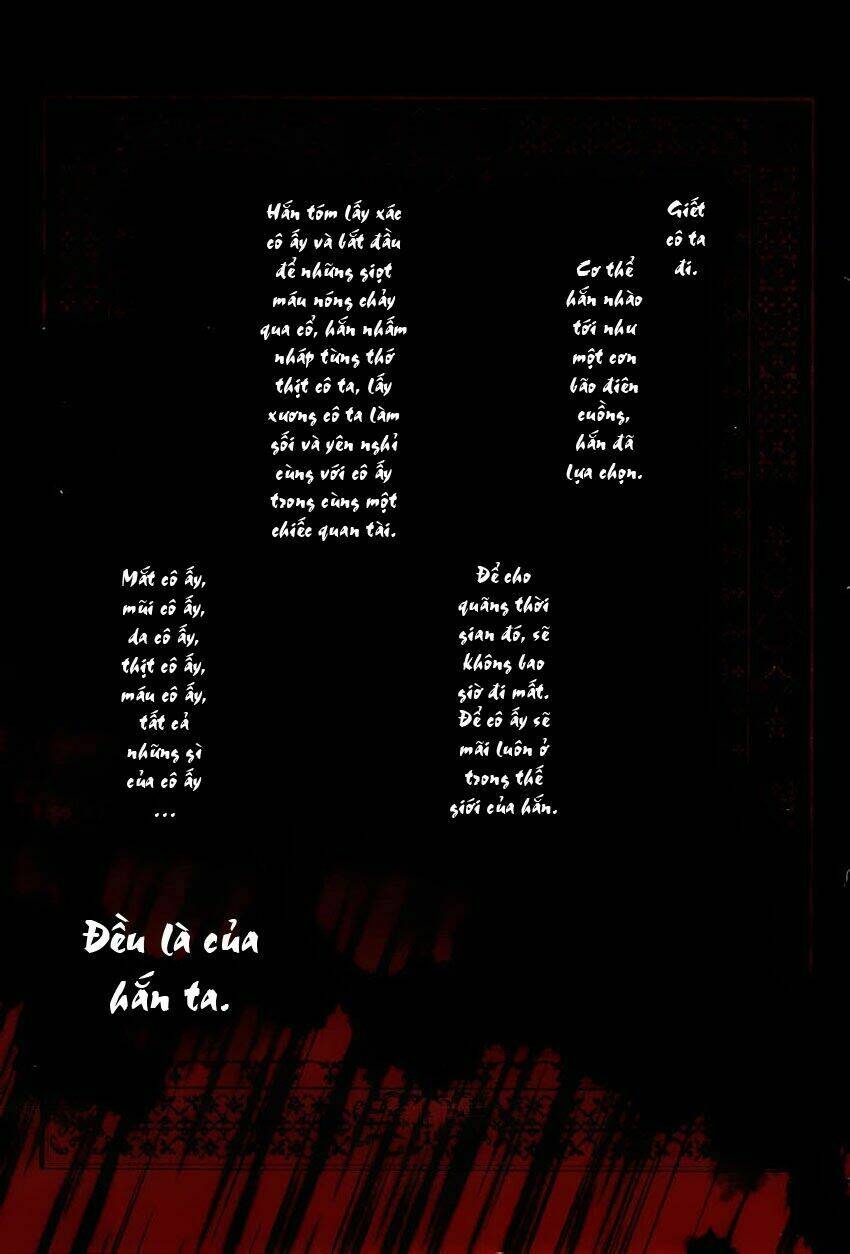 Giết
cô ta
đi.
Cơ thể
hắn nhào
tới như
một cơn
bão điên
cuồng,
hắn đã
lựa chọn.
Để cho
quãng thời
gian đó, sẽ
không bao
giờ đi mất.
Để cô ấy sẽ
mãi luôn ở
trong thế
giới của hắn.
Hắn tóm lấy xác
cô ấy và bắt đầu
để những giọt
máu nóng chảy
qua cổ, hắn nhấm
nháp từng thớ
thịt cô ta, lấy
xương cô ta làm
gối và yên nghỉ
cùng với cô ấy
trong cùng một
chiếc quan tài.
Mắt cô ấy,
mũi cô ấy,
da cô ấy,
thịt cô ấy,
máu cô ấy,
tất cả
những gì
của cô ấy
...
Đều là của
hắn ta.